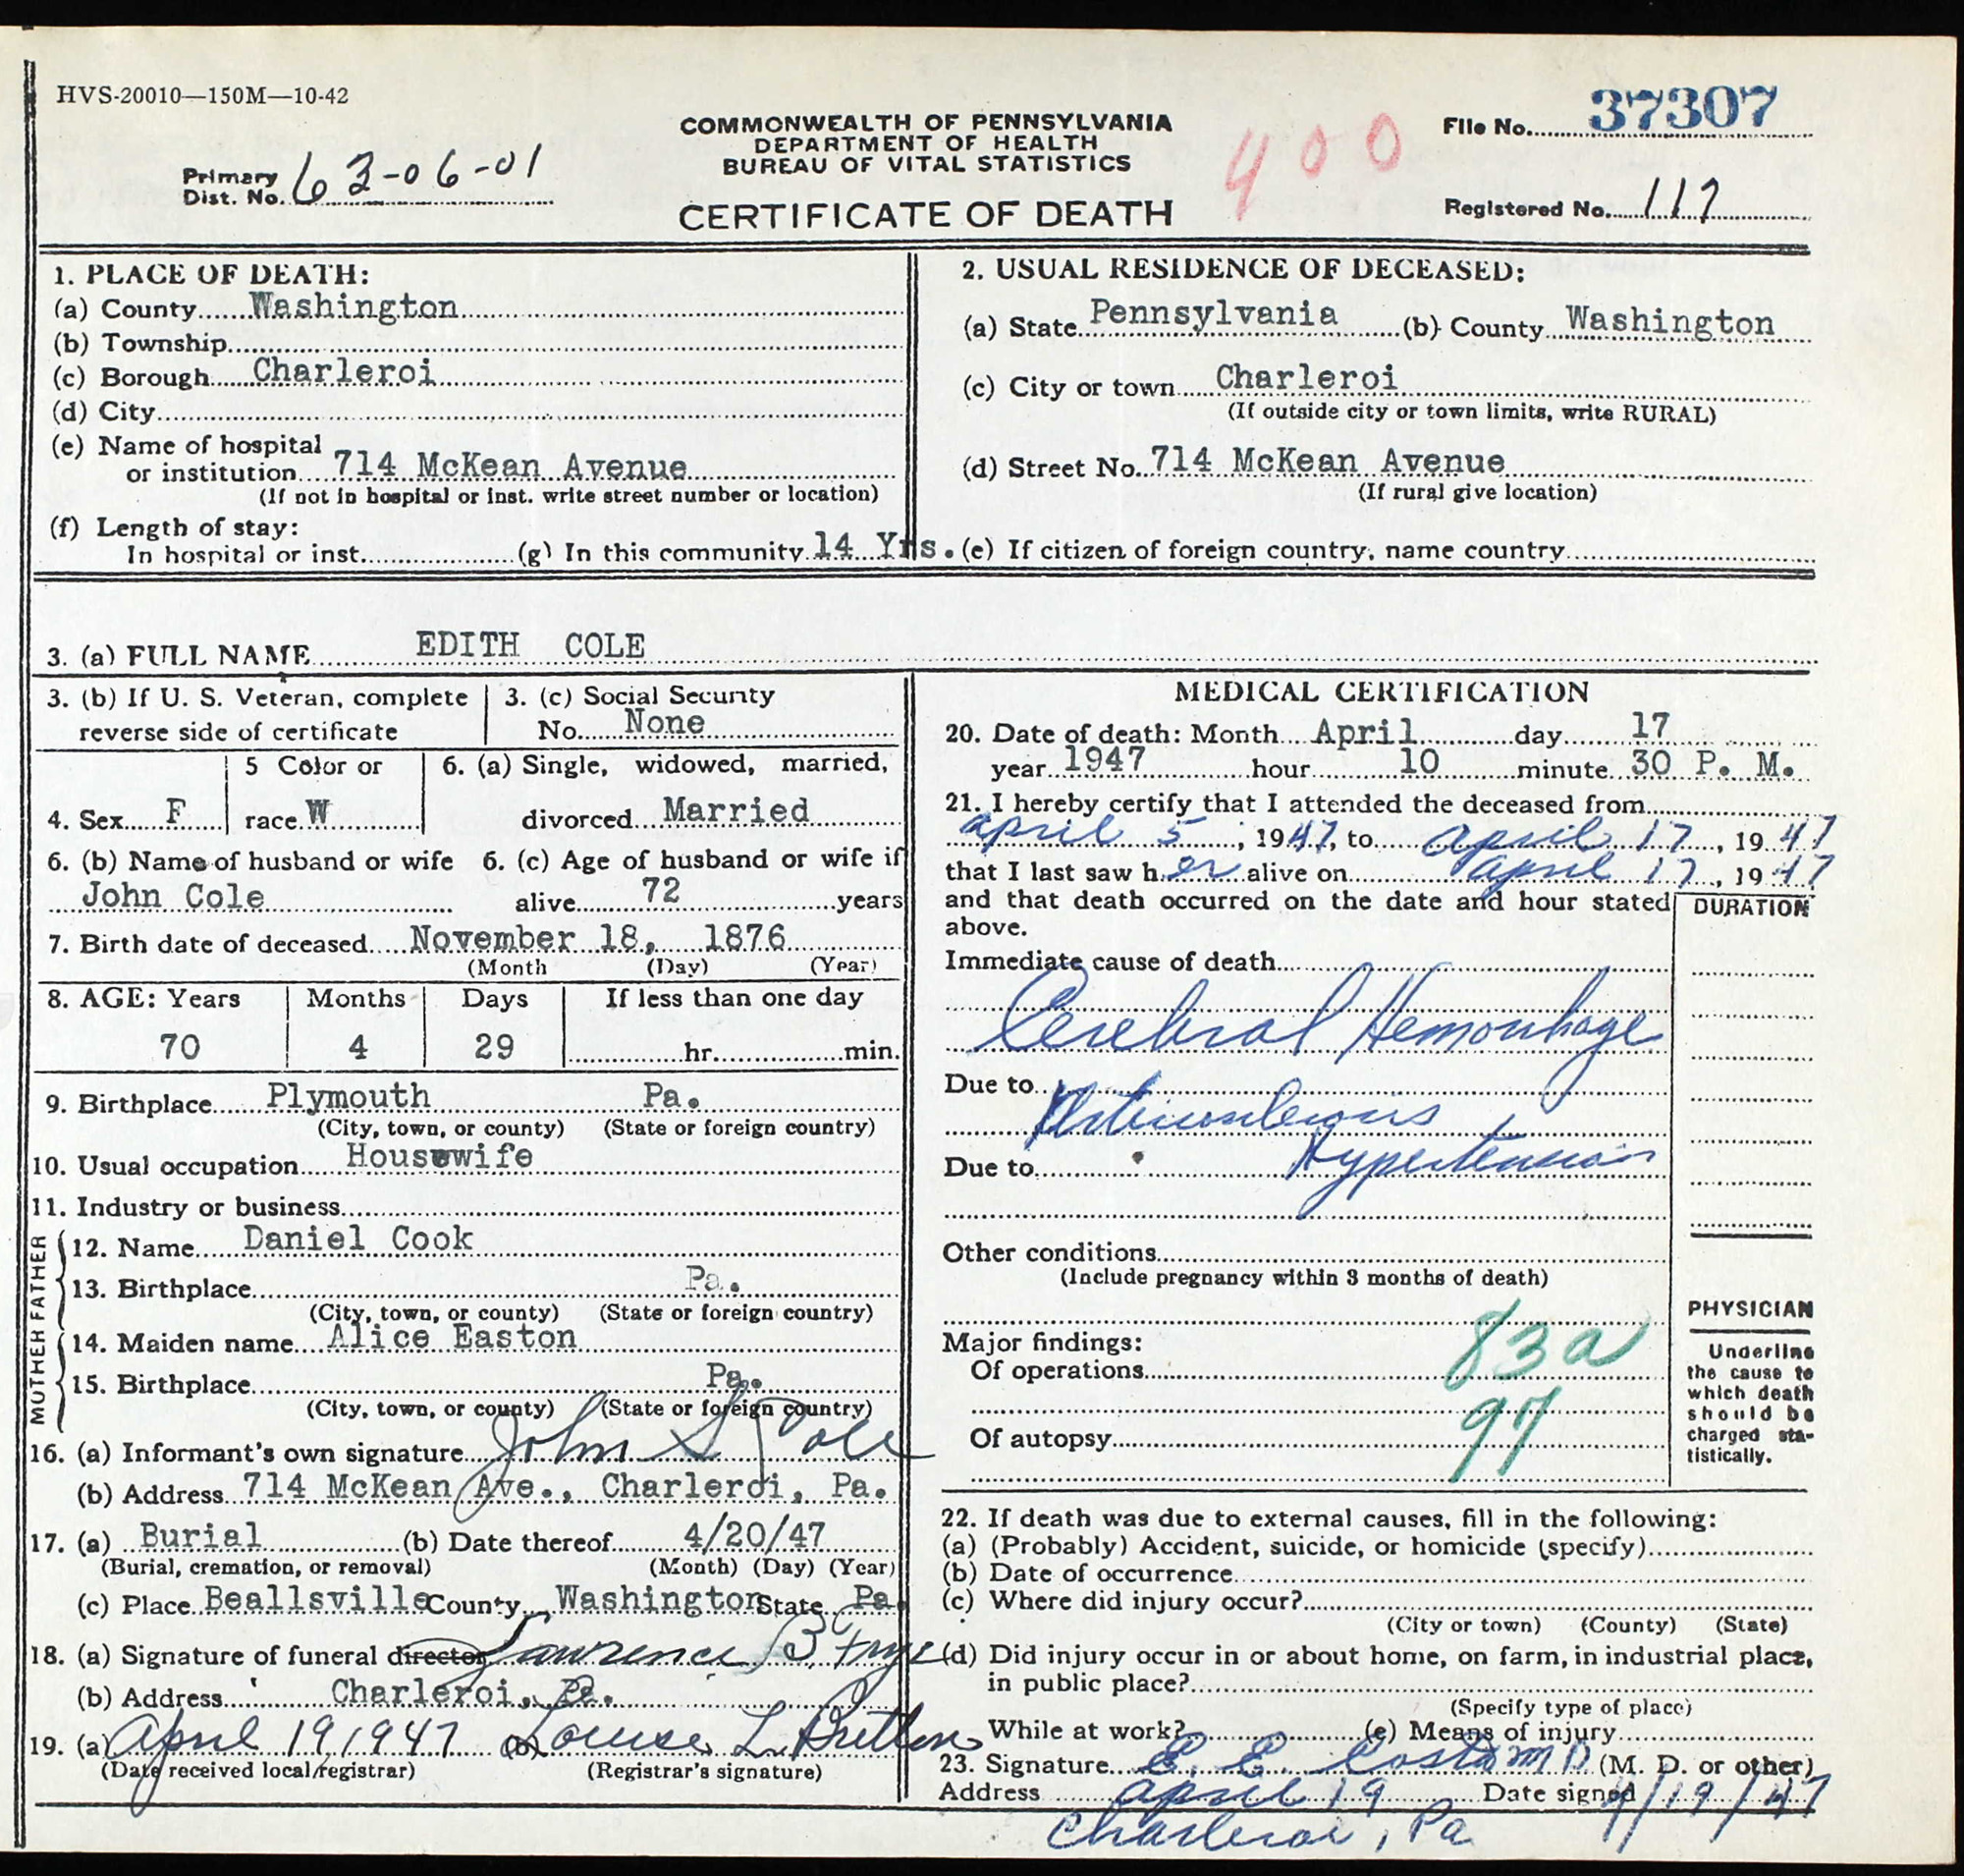 HVS-20010—150M—10-42
COMMONWEALTH OF PENNSYLVANIA
DEPARTMENT OF HEALTH
BUREAU OF VITAL STATISTICS
CERTIFICATE OF DEATH
Primary Dist. No. 63-06-01
400
File No. 37307
Registered No. 117
1. PLACE OF DEATH:
(a) County Washington
(b) Township
(c) Borough Charleroi
(d) City
(e) Name of hospital
or institution 714 McKean Avenue
(If not in hospital or inst. write street number or location)
(f) Length of stay:
In hospital or inst. (g) In this community 14 Yrs.
2. USUAL RESIDENCE OF DECEASED:
(a) State Pennsylvania (b) County Washington
(c) City or town Charleroi
(If outside city or town limits, write RURAL)
(d) Street No. 714 McKean Avenue
(If rural give location)
(e) If citizen of foreign country, name country
3. (a) FULL NAME EDITH COLE
3. (b) If U. S. Veteran, complete
reverse side of certificate
3. (c) Social Security
No. None
4. Sex F
5 Color or
race W
6. (a) Single, widowed, married,
divorced Married
6. (b) Name of husband or wife
John Cole
6. (c) Age of husband or wife if
alive 72 years
7. Birth date of deceased November 18, 1876
(Month (Day) (Year)
8. AGE: Years Months Days If less than one day
70 4 29 hr. min.
9. Birthplace Plymouth Pa.
(City, town, or county) (State or foreign country)
10. Usual occupation Housewife
11. Industry or business
FATHER
12. Name Daniel Cook
13. Birthplace Pa.
(City, town, or county) (State or foreign country)
MOTHER
14. Maiden name Alice Easton
15. Birthplace Pa.
(City, town, or county) (State or foreign country)
16. (a) Informant's own signature John S Cole
(b) Address 714 McKean Ave., Charleroi, Pa.
17. (a) Burial (b) Date thereof 4/20/47
(Burial, cremation, or removal) (Month) (Day) (Year)
(c) Place Beallsville County Washington State Pa.
18. (a) Signature of funeral director Lawrence B Frye
(b) Address Charleroi, Pa.
19. (a) April 19 1947 (b) Louise L.
(Date received local registrar) (Registrar's signature)
MEDICAL CERTIFICATION
20. Date of death: Month April day 17
year 1947 hour 10 minute 30 P. M.
21. I hereby certify that I attended the deceased from
april 5, 1947, to april 17, 1947
that I last saw her alive on april 17, 1947
and that death occurred on the date and hour stated
above.
DURATION
Immediate cause of death
Cerebral Hemorrhage
Due to
Due to Hypertension
Other conditions
(Include pregnancy within 3 months of death)
Major findings:
Of operations
83a
97
Of autopsy
PHYSICIAN
Underline
the cause to
which death
should be
charged sta-
tistically.
22. If death was due to external causes, fill in the following:
(a) (Probably) Accident, suicide, or homicide (specify)
(b) Date of occurrence
(c) Where did injury occur?
(City or town) (County) (State)
(d) Did injury occur in or about home, on farm, in industrial place,
in public place?
(Specify type of place)
While at work? (e) Means of injury
23. Signature E. E. Costa M D. (M. D. or other)
Address april 19 Date signed 4/19/47
Charleroi, Pa